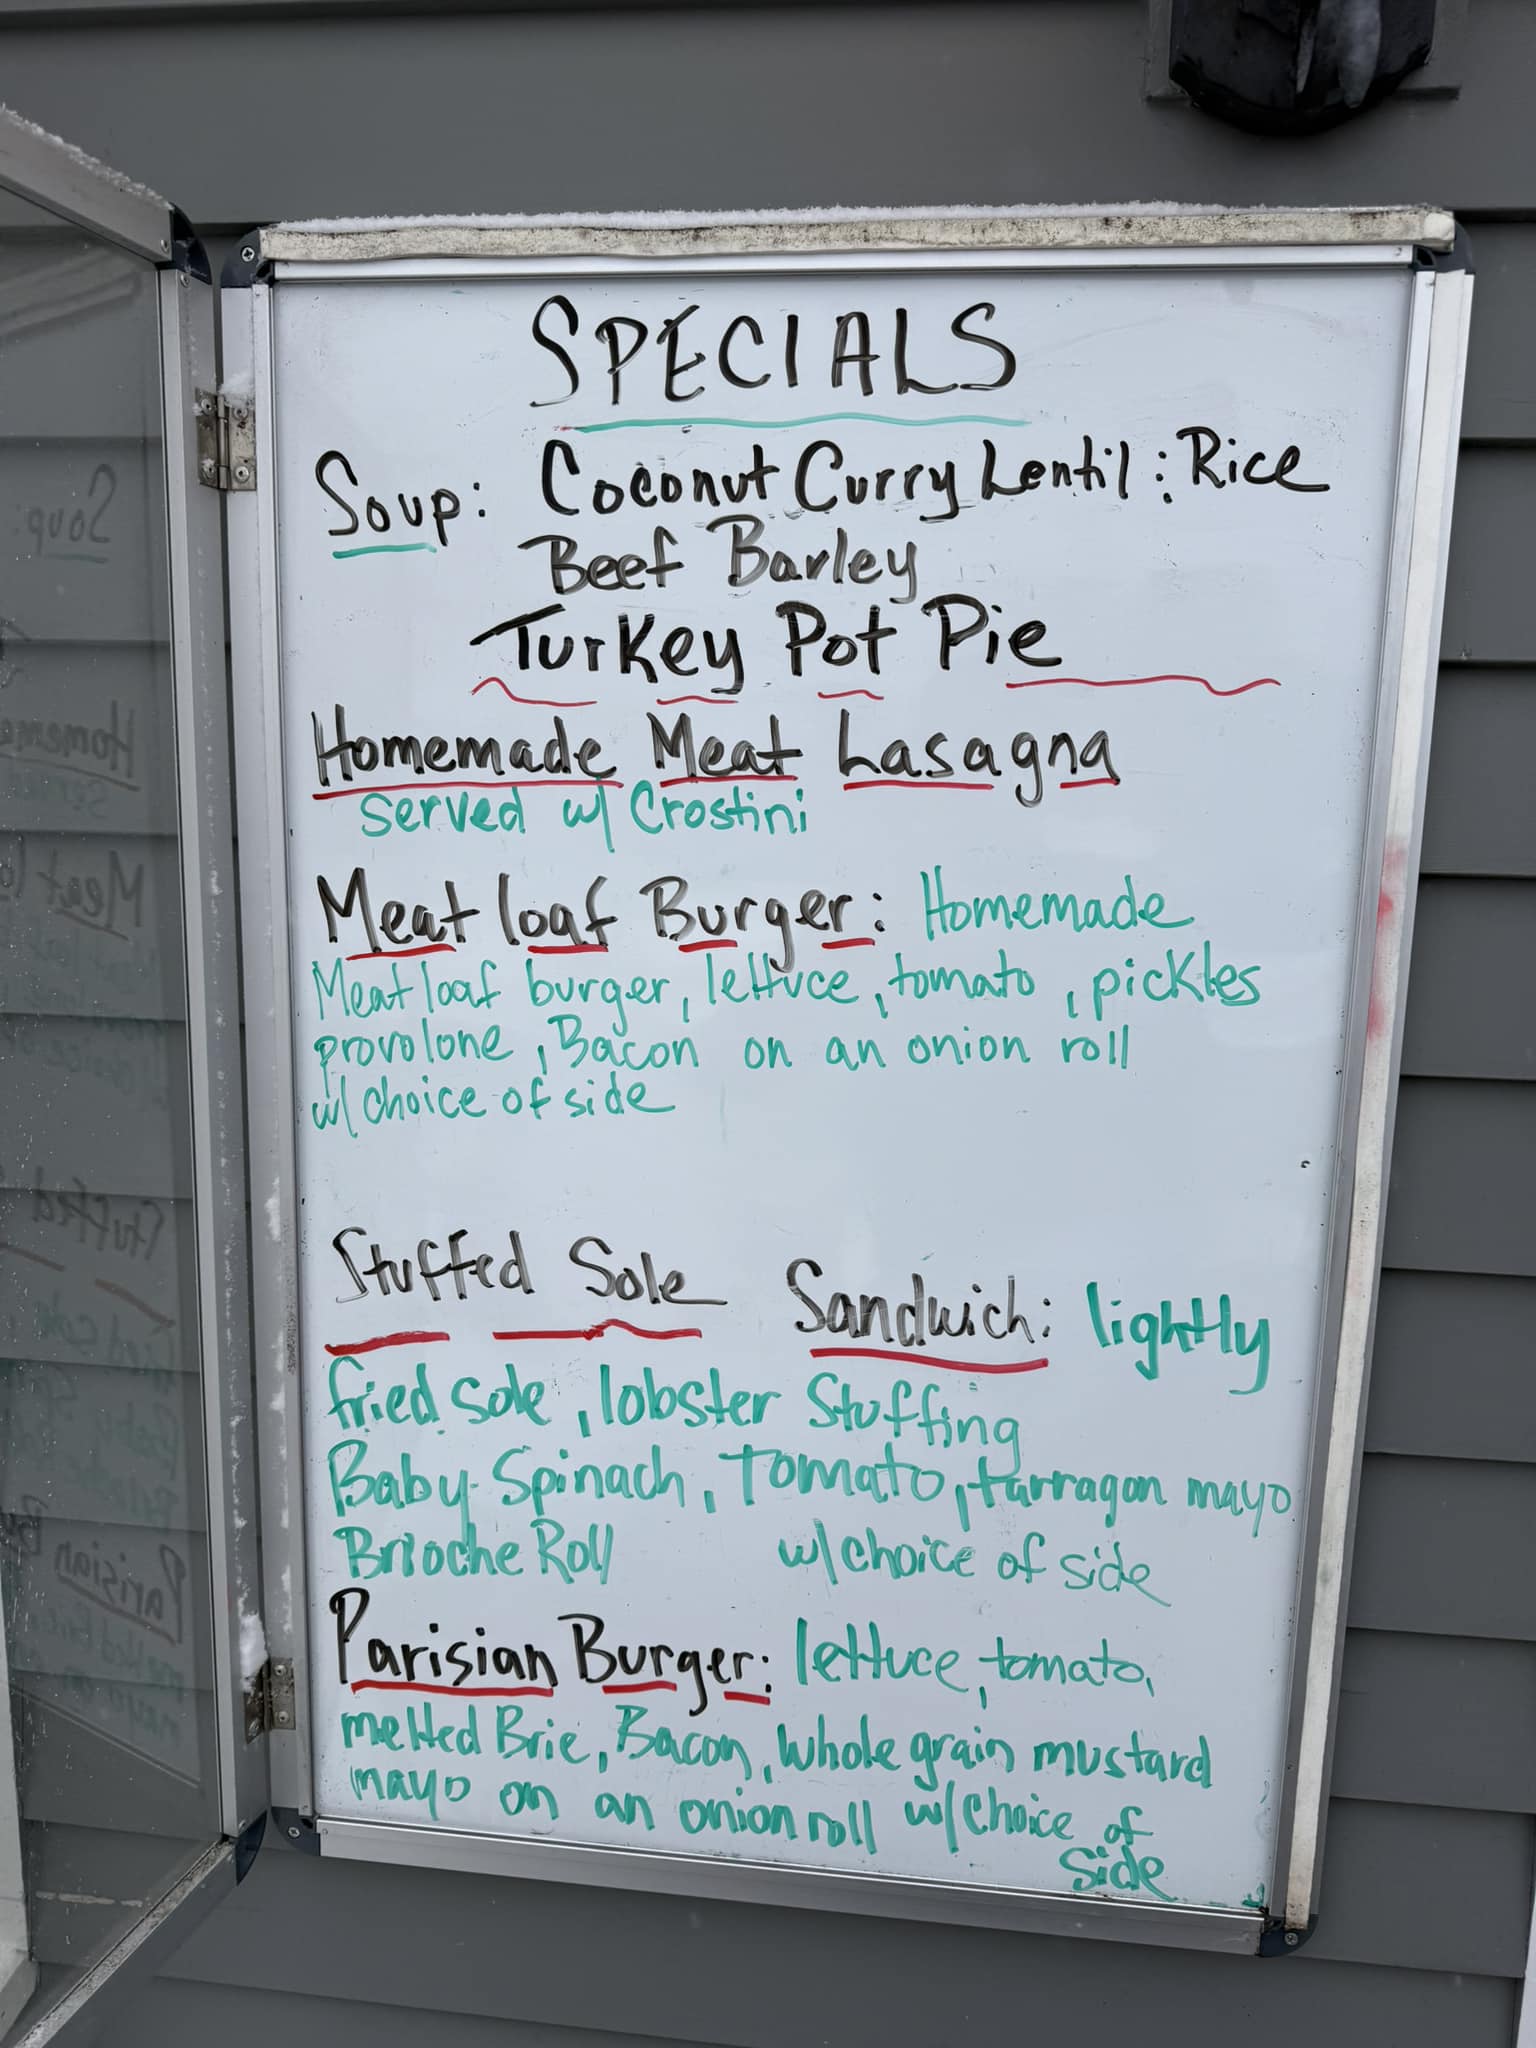 SPECIALS
Soup: Coconut Curry Lentil : Rice
Beef Barley
Turkey Pot Pie
Homemade Meat Lasagna
served w/ Crostini
Meat loaf Burger: Homemade
Meat loaf burger, lettuce, tomato, pickles
provolone, Bacon on an onion roll
w/ choice of side
Stuffed Sole Sandwich: lightly
fried sole, lobster Stuffing
Baby Spinach, Tomato, tarragon mayo
Brioche Roll w/ choice of side
Parisian Burger: lettuce, tomato,
melted Brie, Bacon, whole grain mustard
mayo on an onion roll w/ choice of
side